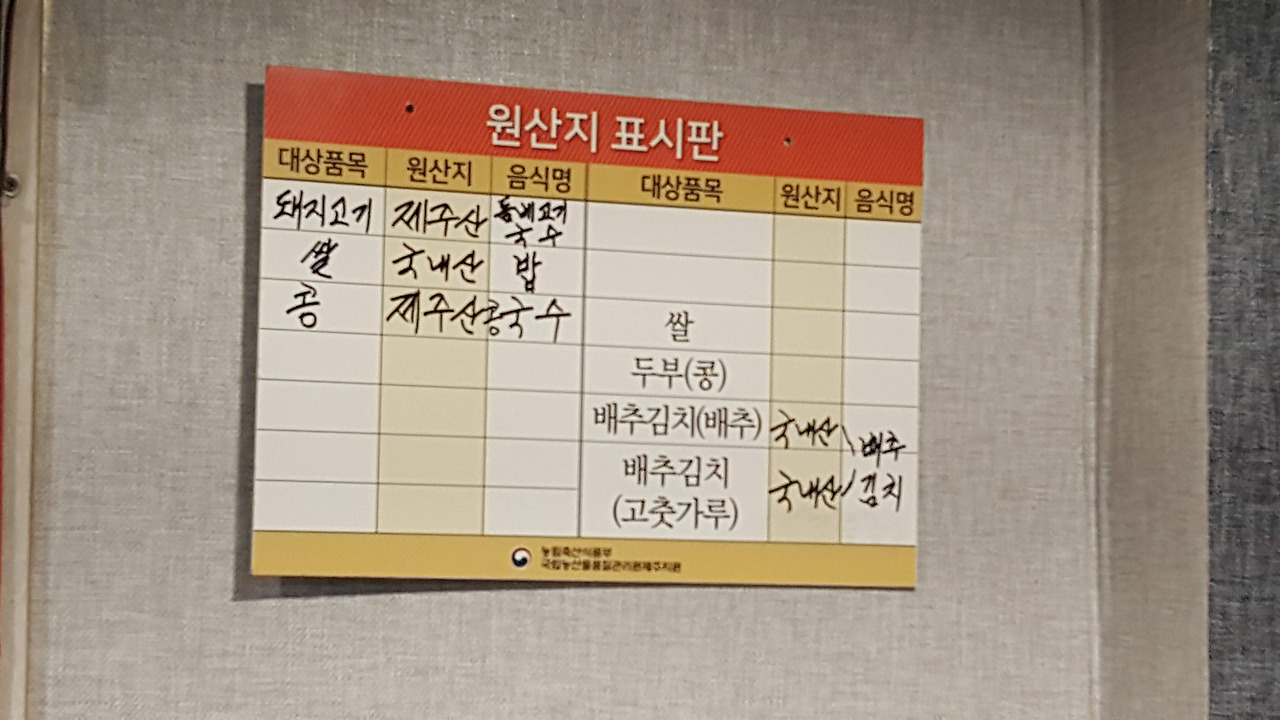 원산지 표시판
대상품목 원산지 음식명 대상품목 원산지 음식명
돼지고기 제주산 돔베고기
국수
쌀 국내산 밥
콩 제주산 콩국수 쌀
두부(콩)
배추김치(배추) 국내산 배추
배추김치 국내산 김치
(고춧가루)
농림축산식품부
국립농산물품질관리원제주지원